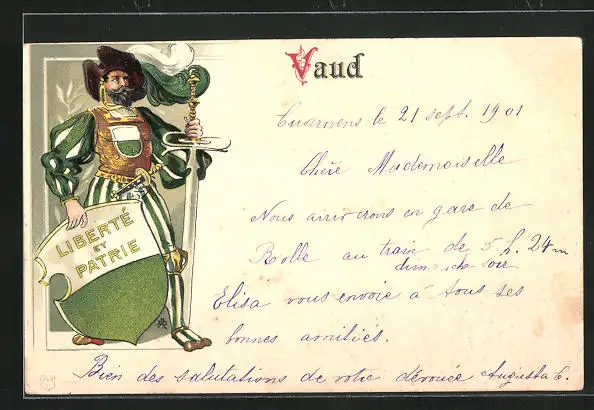 Vaud
LIBERTÉ
ET
PATRIE
Cuarnens le 21 sept. 1901
Chère Mademoiselle
Nous arriverons en gare de
Rolle au train de 5 h. 24 m
dimanche soir
Elisa vous envoie à tous ses
bonnes amitiés.
Bien des salutations de votre dévouée Augusta C.